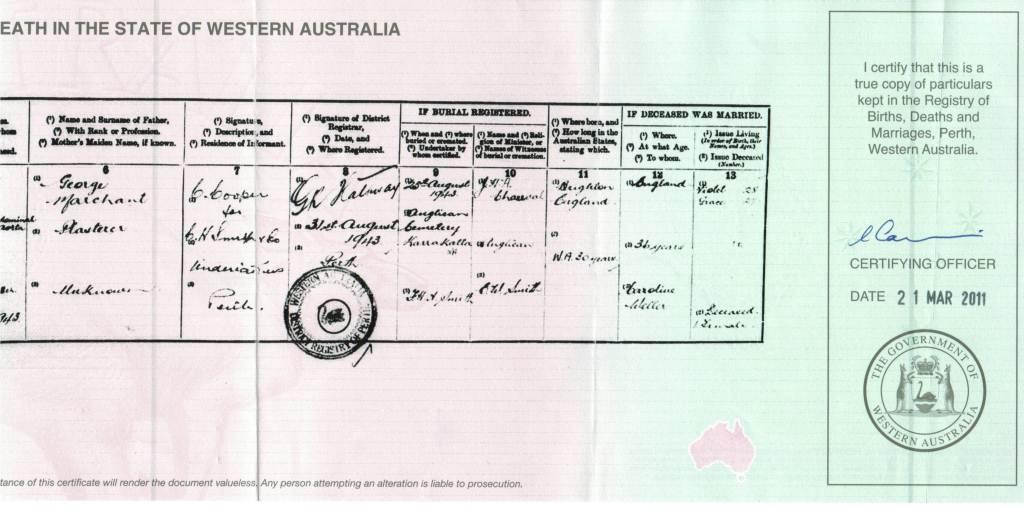 EATH IN THE STATE OF WESTERN AUSTRALIA
I certify that this is a
true copy of particulars
kept in the Registry of
Births, Deaths and
Marriages, Perth,
Western Australia.
CERTIFYING OFFICER
DATE 21 MAR 2011
THE GOVERNMENT OF
WESTERN AUSTRALIA
(1) Name and Surname of Father,
(2) With Rank or Profession.
(3) Mother's Maiden Name, if known.
6
(1) George
Marchant
(2) Plasterer
(3) Unknown
(1) Signature,
(2) Description, and
(3) Residence of Informant.
7
C. Cooper
for
C H Smith & Co
Undertakers
Perth.
(1) Signature of District
Registrar,
(2) Date, and
(3) Where Registered.
8
31st August
1943
Perth
WESTERN AUSTRALIA
DISTRICT REGISTRY OF PERTH
IF BURIAL REGISTERED.
(1) When and (2) where
buried or cremated.
(3) Undertaker by
whom certified.
9
August
1943
(2) Anglican
Cemetery
Karrakatta
Smith
(1) Name and (2) Reli-
gion of Minister, or
(3) Names of Witnesses
of burial or cremation.
10
(2) Anglican
Smith
(1) Where born, and
(2) How long in the
Australian States,
stating which.
11
Brighton
England
W.A. 30 years
IF DECEASED WAS MARRIED.
(1) Where.
(2) At what Age.
(3) To whom.
12
England
(2) 36 years
Caroline
Weller
(1) Issue Living
(In order of Birth, their
Names, and Ages.)
(2) Issue Deceased
(Number.)
13
Violet 28
Grace
(2) Deceased
1 Female
tance of this certificate will render the document valueless. Any person attempting an alteration is liable to prosecution.